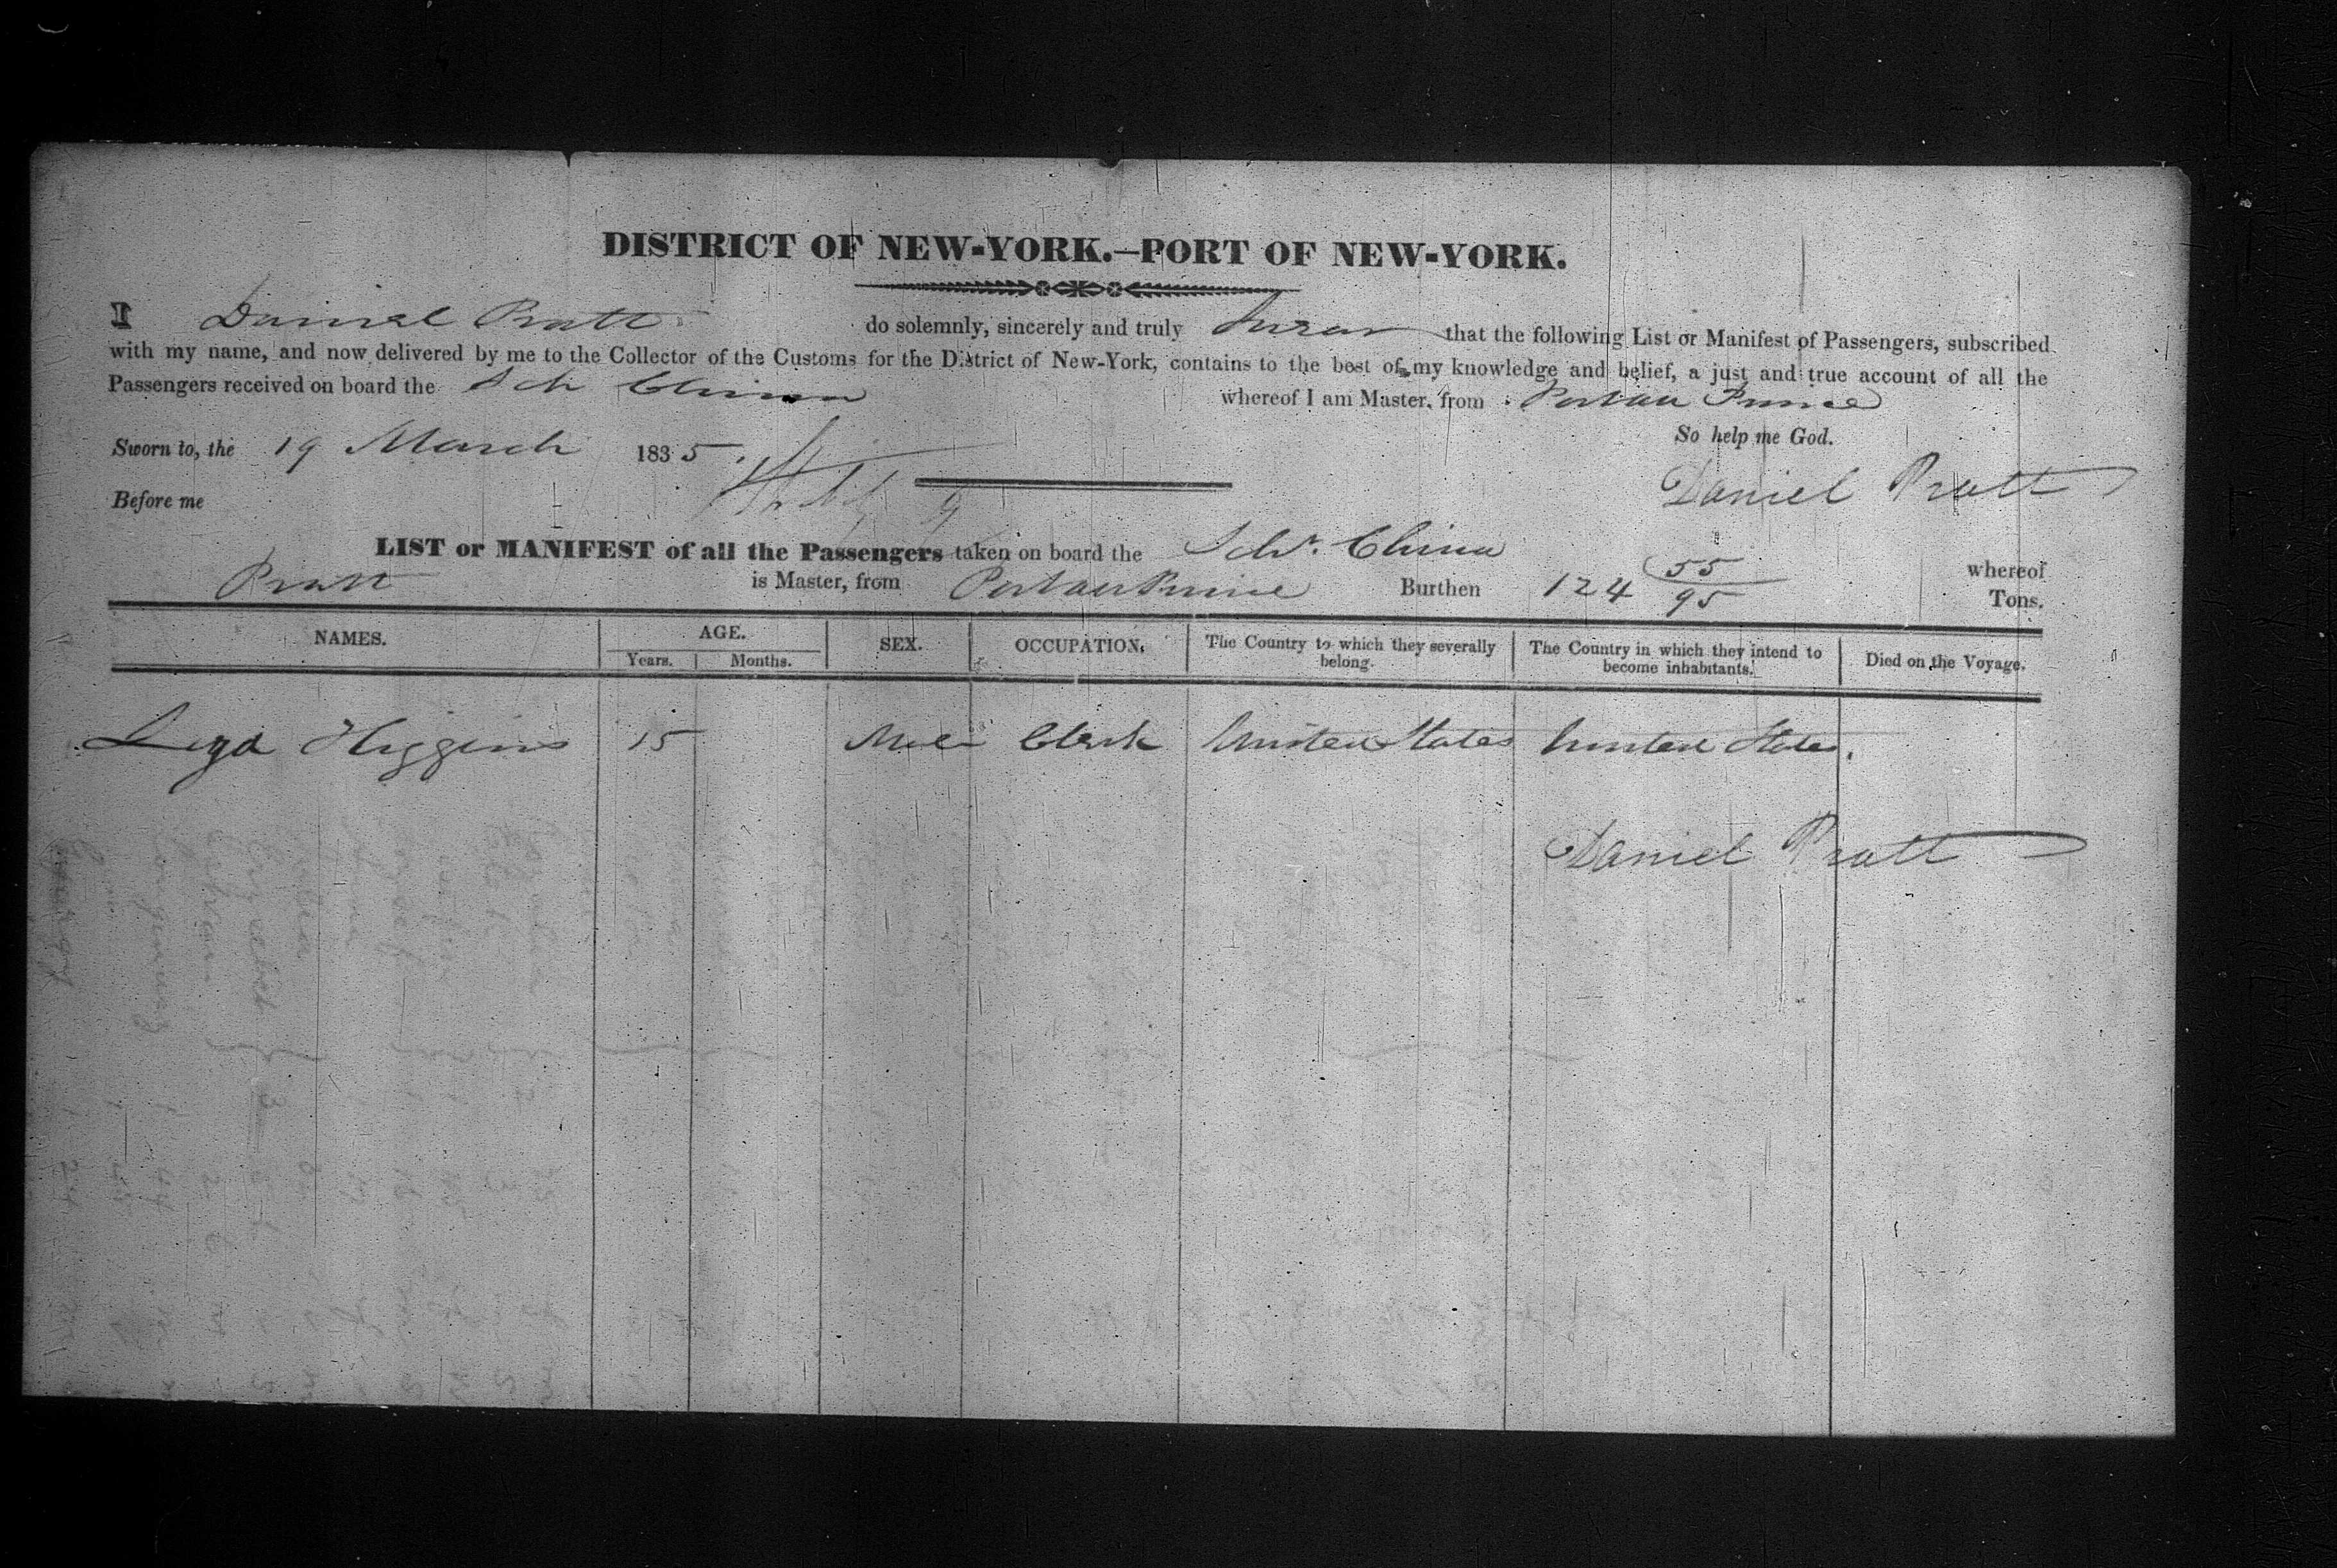 DISTRICT OF NEW-YORK.—PORT OF NEW-YORK.
I Daniel Pratt do solemnly, sincerely and truly swear that the following List or Manifest of Passengers, subscribed
with my name, and now delivered by me to the Collector of the Customs for the District of New-York, contains to the best of my knowledge and belief, a just and true account of all the
Passengers received on board the Sch China whereof I am Master, from Port au Prince
So help me God.
Sworn to, the 19 March 1835.
Daniel Pratt
Before me
LIST or MANIFEST of all the Passengers taken on board the Schr. China whereof
Pratt is Master, from Port au Prince Burthen 124 55/95 Tons.
NAMES. AGE. SEX. OCCUPATION. The Country to which they severally belong. The Country in which they intend to become inhabitants. Died on the Voyage.
Years. Months.
Higgins 15 Male Clerk United States United States.
Daniel Pratt